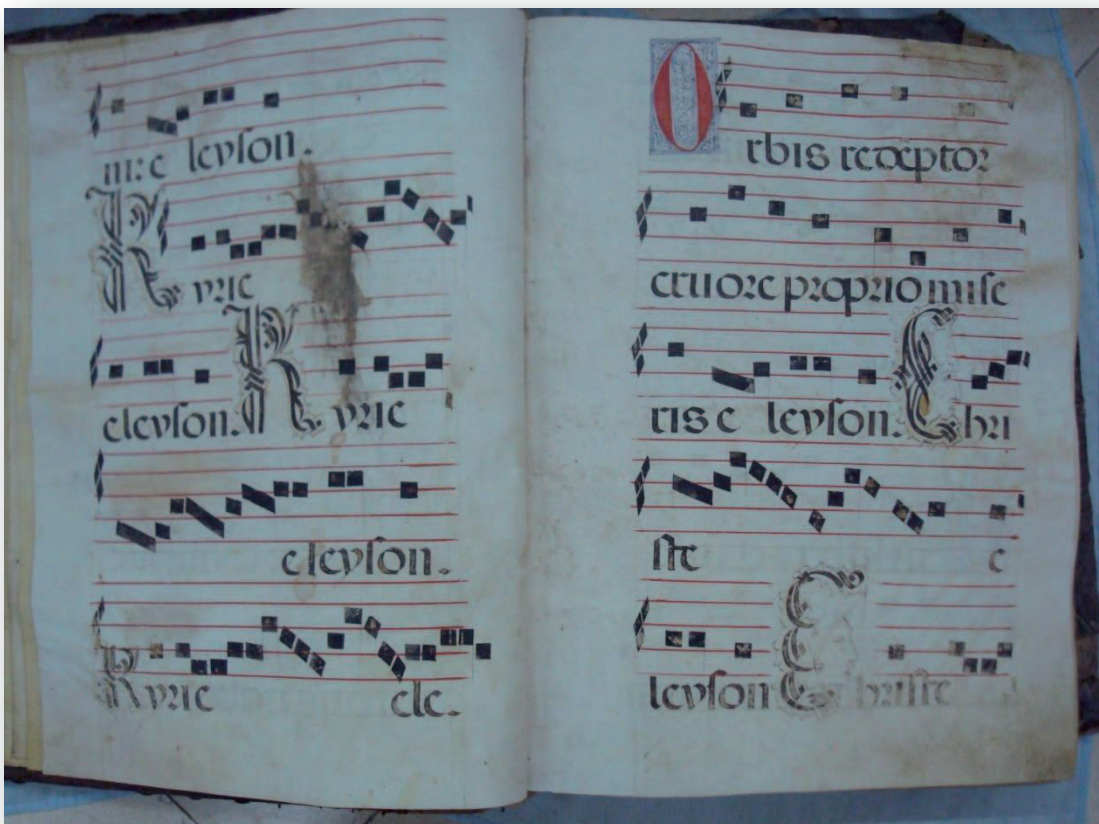 m: e leyson.
Kyrie
eleyson. Kyrie
eleyson.
Kyrie ele.
Orbis redeptor
cruore proprio mise
ris e leyson. Chri
ste e
leyson Christe